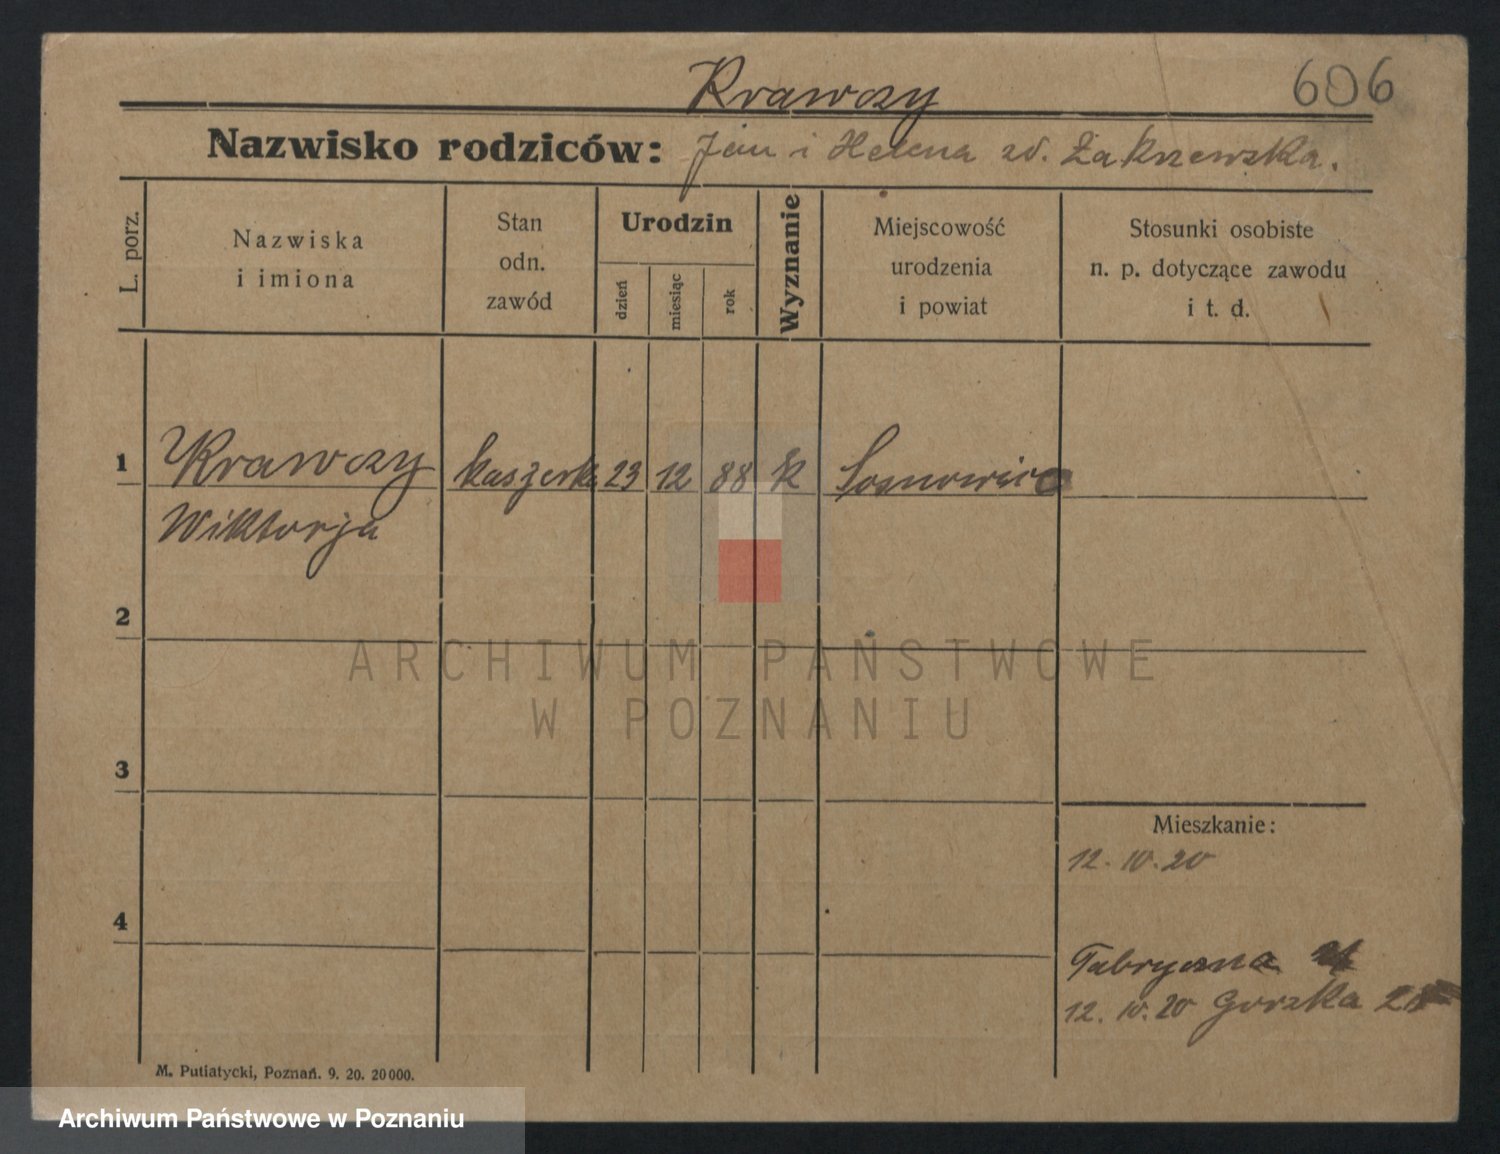 Krawczy 606
Nazwisko rodziców: Jan i Helena zd. Zakrzewska.
L. porz.
Nazwiska
i imiona
Stan
odn.
zawód
Urodzin
dzień
miesiąc
rok
Wyznanie
Miejscowość
urodzenia
i powiat
Stosunki osobiste
n. p. dotyczące zawodu
i t. d.
1 Krawczy 23 12 88 k Sosnowiec
Wiktorja
2
ARCHIWUM PAŃSTWOWE
W POZNANIU
3
Mieszkanie:
12. 10. 20
4
Fabryczna
12. 10. 20 Gorzka
M. Putiatycki, Poznań. 9. 20. 20000.
Archiwum Państwowe w Poznaniu